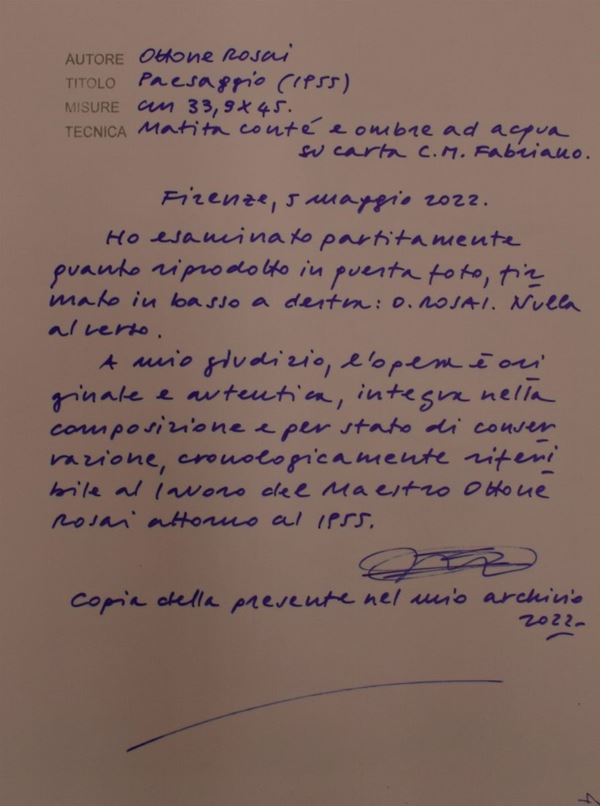 AUTORE Ottone Rosai
TITOLO Paesaggio (1955)
MISURE cm 33,9x45.
TECNICA Matita conté e ombre ad acqua
su carta C.M. Fabriano.
Firenze, 5 maggio 2022.
Ho esaminato partitamente
quanto riprodotto in questa foto, fir
mato in basso a destra: O. ROSAI. Nulla
al verso.
A mio giudizio, l'opera è ori
ginale e autentica, integra nella
composizione e per stato di conser
vazione, cronologicamente riferi
bile al lavoro del Maestro Ottone
Rosai attorno al 1955.
Copia della presente nel mio archivio
2022-
4